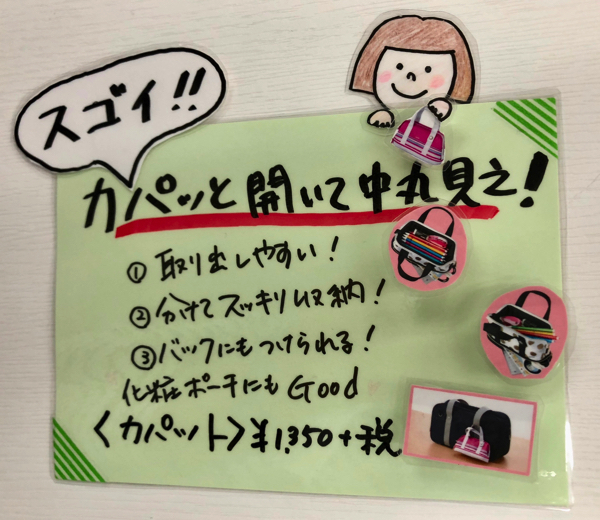 スゴイ!!
カパッと開いて中丸見え!
①取り出しやすい!
②分けてスッキリ収納!
③バックにもつけられる!
化粧ポーチにもGood
〈カパット〉¥1,350+税